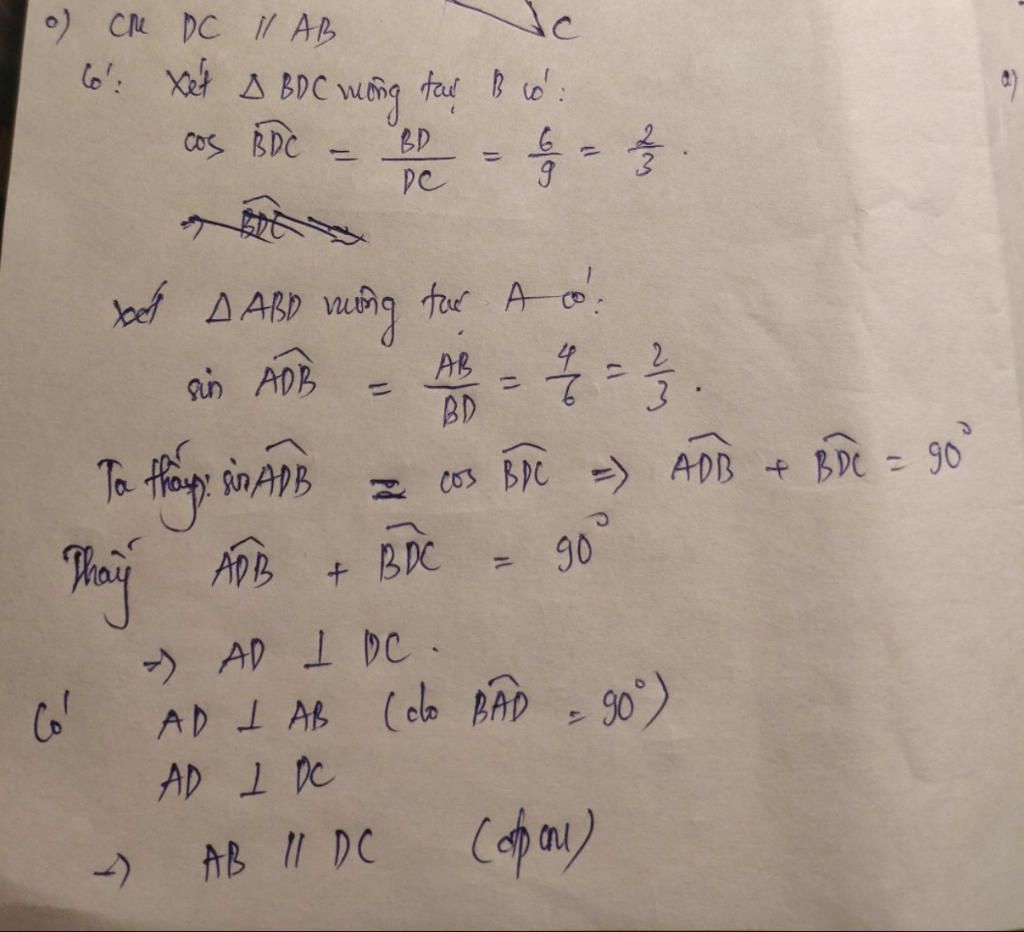 C
a)
a) CM DC // AB
Có: Xét Δ BDC vuông tại B có:
cos BDC = BD/DC = 6/9 = 2/3.
⇒ BDC
Xét Δ ABD vuông tại A có:
sin ADB = AB/BD = 4/6 = 2/3.
Ta thấy: sin ADB = cos BDC ⇒ ADB + BDC = 90°
Thấy ADB + BDC = 90°
⇒ AD ⊥ DC.
Có AD ⊥ AB (do BAD = 90°)
AD ⊥ DC
⇒ AB // DC (đpcm)